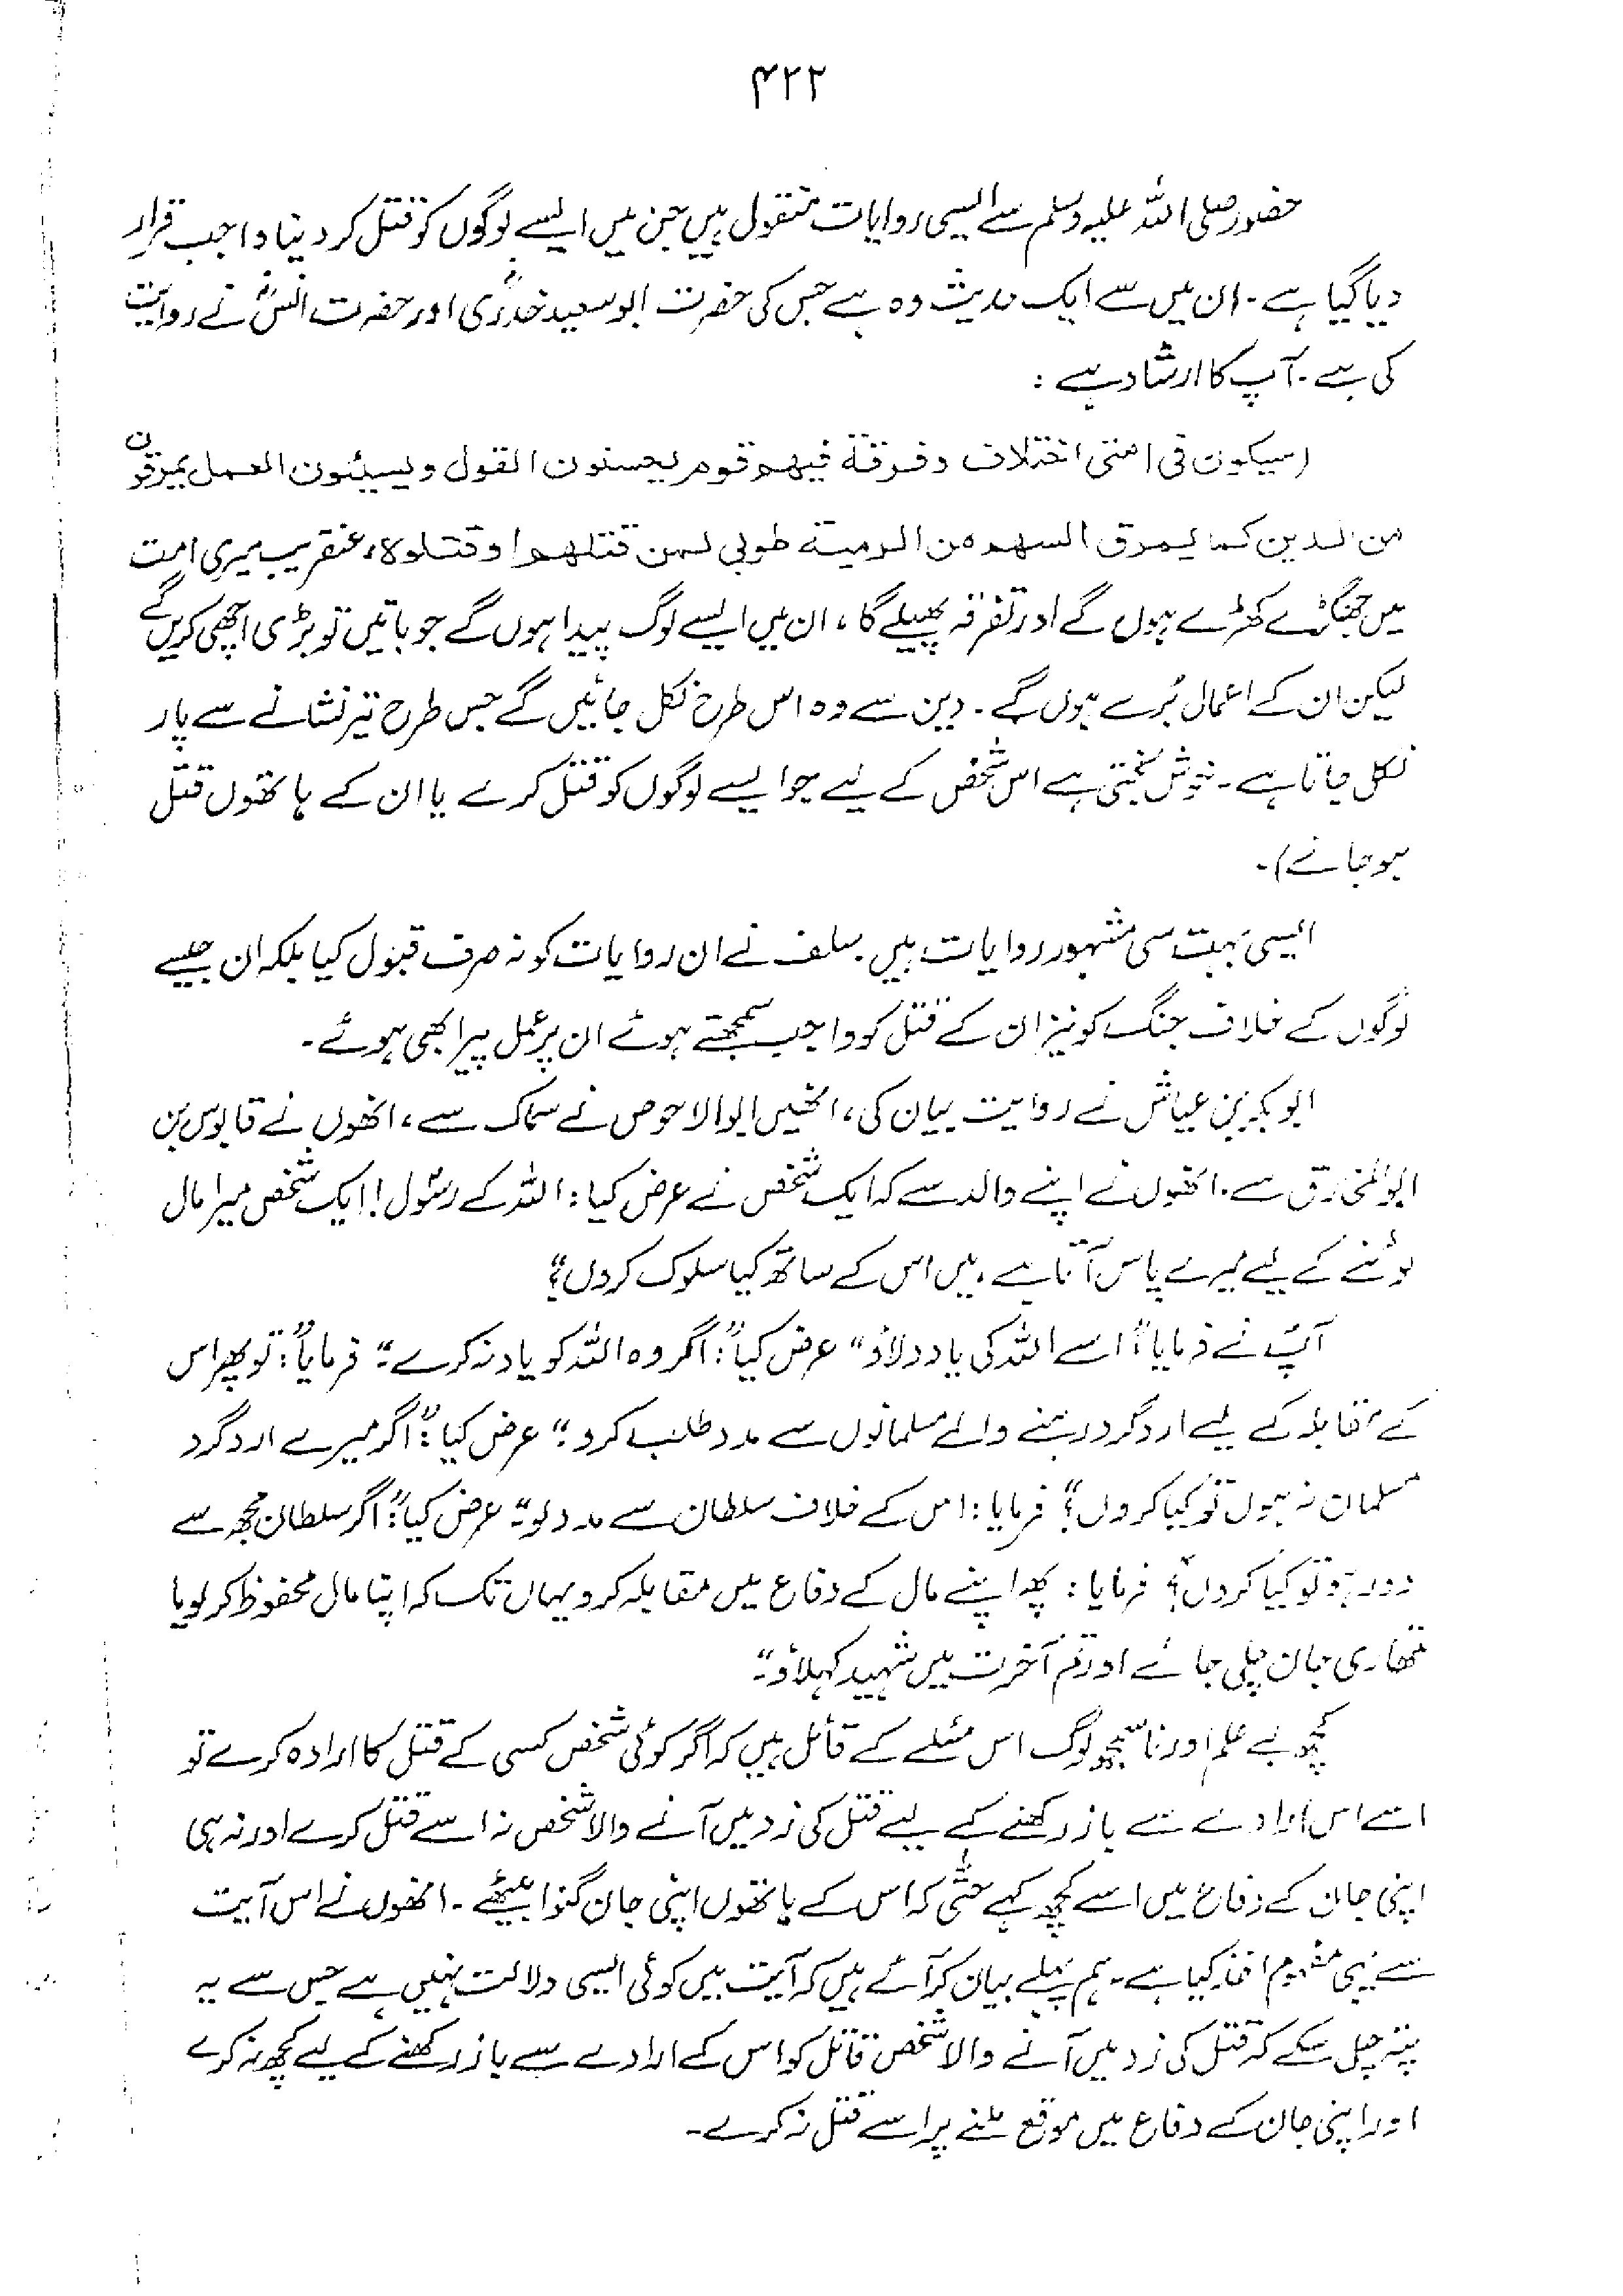 ۴۲۲
حضور صلی اللہ علیہ وسلم سے ایسی روایات منقول ہیں جن میں ایسے لوگوں کو قتل کر دینا واجب قرار
دیا گیا ہے۔ ان میں سے ایک حدیث وہ ہے جس کی حضرت ابوسعید خدریؓ اور حضرت انسؓ نے روایت
کی ہے۔ آپ کا ارشاد ہے :
(سیکون فی امتی اختلاف و فرقۃ فیھم قوم یحسنون القول و یسیئون العمل یمرقون
من الدین کما یمرق السھم من الرمیۃ طوبی لمن قتلھم او قتلوہ، عنقریب میری امت
میں جھگڑے کھڑے ہوں گے اور تفرقہ پھیلے گا، ان میں ایسے لوگ پیدا ہوں گے جو باتیں تو بڑی اچھی کریں گے
لیکن ان کے اعمال بُرے ہوں گے۔ دین سے وہ اس طرح نکل جائیں گے جس طرح تیر نشانے سے پار
نکل جاتا ہے۔ خوش بختی ہے اس شخص کے لیے جو ایسے لوگوں کو قتل کرے یا ان کے ہاتھوں قتل
ہو جائے)۔
ایسی بہت سی مشہور روایات ہیں۔ سلف نے ان روایات کو نہ صرف قبول کیا بلکہ ان جیسے
لوگوں کے خلاف جنگ کو نیز ان کے قتل کو واجب سمجھتے ہوئے ان پر عمل پیرا بھی ہوئے۔
ابوبکر بن عیاش نے روایت بیان کی، انھیں ابوالاحوص نے سماک سے، انھوں نے قابوس بن
ابوالمخارق سے، انھوں نے اپنے والد سے کہ ایک شخص نے عرض کیا: اللہ کے رسول! ایک شخص میرا مال
لوٹنے کے لیے میرے پاس آتا ہے، میں اس کے ساتھ کیا سلوک کروں؟"
آپؐ نے فرمایا: "اسے اللہ کی یاد دلاؤ" عرض کیا: "اگر وہ اللہ کو یاد نہ کرے"۔ فرمایا: "تو پھر اس
کے مقابلہ کے لیے ارد گرد رہنے والے مسلمانوں سے مدد طلب کرو"۔ عرض کیا: "اگر میرے ارد گرد
مسلمان نہ ہوں تو کیا کروں؟" فرمایا: اس کے خلاف سلطان سے مدد لو"۔ عرض کیا: "اگر سلطان مجھ سے
دور ہو تو کیا کروں؟" فرمایا: پھر اپنے مال کے دفاع میں مقابلہ کرو یہاں تک کہ اپنا مال محفوظ کر لو یا
تمھاری جان چلی جائے اور تم آخرت میں شہید کہلاؤ"۔
کچھ بے علم اور ناسمجھ لوگ اس مسئلے کے قائل ہیں کہ اگر کوئی شخص کسی کے قتل کا ارادہ کرے تو
اسے اس ارادے سے باز رکھنے کے لیے قتل کی زد میں آنے والا شخص نہ اسے قتل کرے اور نہ ہی
اپنی جان کے دفاع میں اسے کچھ کہے حتیٰ کہ اس کے ہاتھوں اپنی جان گنوا بیٹھے۔ انھوں نے اس آیت
سے یہی مفہوم اخذ کیا ہے۔ ہم پہلے بیان کر آئے ہیں کہ آیت میں کوئی ایسی دلالت نہیں ہے جس سے یہ
پتہ چل سکے کہ قتل کی زد میں آنے والا شخص قاتل کو اس کے ارادے سے باز رکھنے کے لیے کچھ نہ کرے
اور اپنی جان کے دفاع میں موقع ملنے پر اسے قتل نہ کرے۔